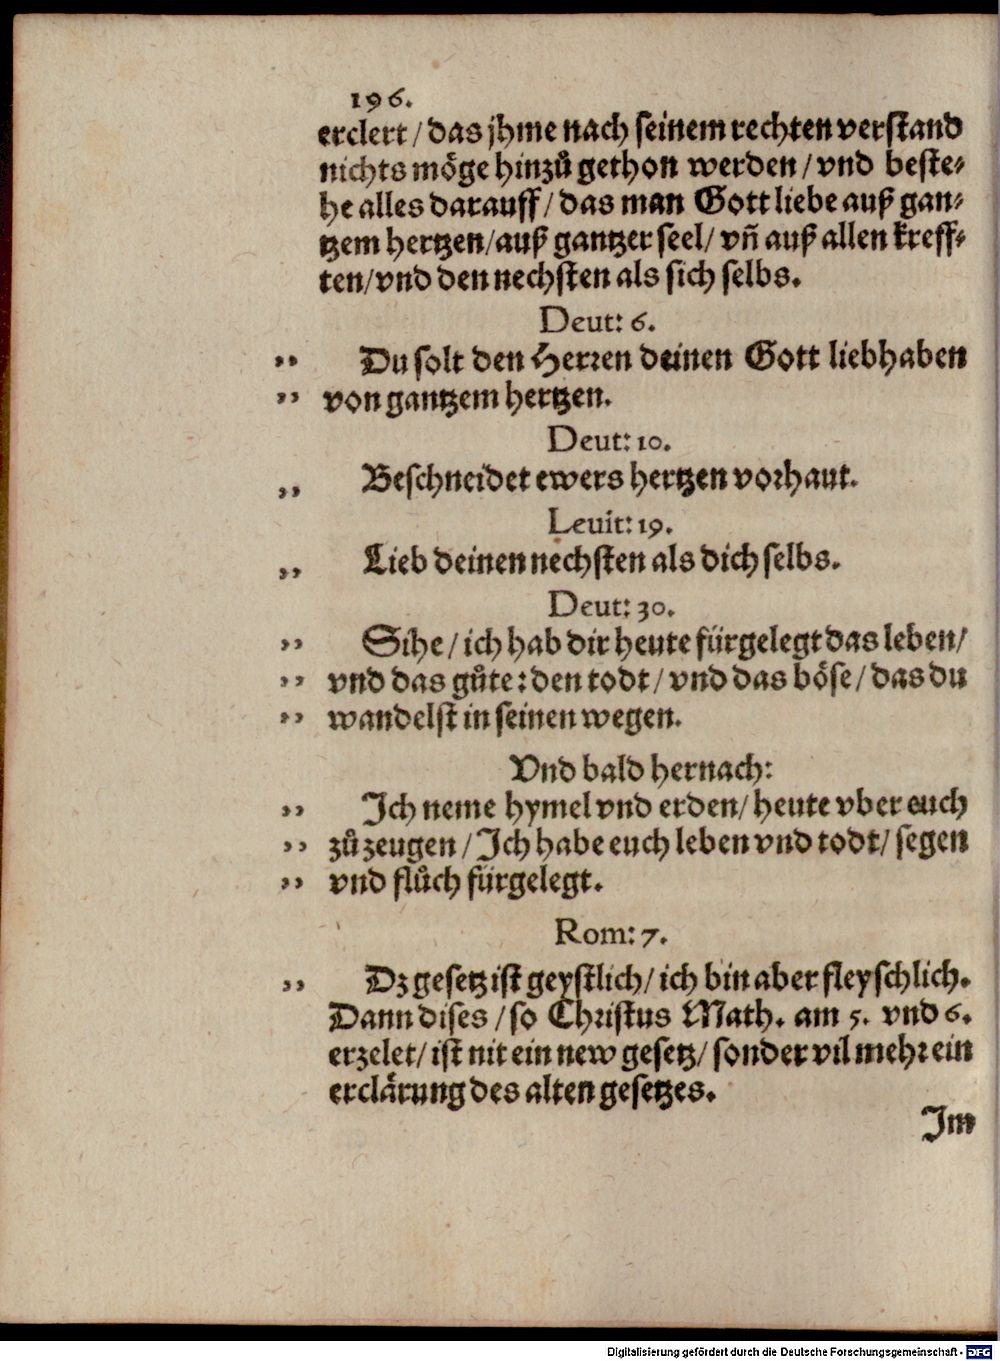 196.
erclert / das jhme nach seinem rechten verstand
nichts möge hinzů gethon werden / vnd beste⸗
he alles darauff / das man Gott liebe auß gan⸗
tzem hertzen / auß gantzer seel / vñ auß allen kreff⸗
ten / vnd den nechsten als sich selbs.
Deut: 6.
„ Du solt den Herren deinen Gott liebhaben
„ von gantzem hertzen.
Deut: 10.
„ Beschneidet ewers hertzen vorhaut.
Leuit: 19.
„ Lieb deinen nechsten als dich selbs.
Deut: 30.
„ Sihe / ich hab dir heute fürgelegt das leben /
„ vnd das gůte : den todt / vnd das böse / das du
„ wandelst in seinen wegen.
Vnd bald hernach:
„ Ich neme hymel vnd erden / heute vber euch
„ zů zeugen / Ich habe euch leben vnd todt / segen
„ vnd flůch fürgelegt.
Rom: 7.
„ Dz gesetz ist geystlich / ich bin aber fleyschlich.
Dann dises / so Christus Math. am 5. vnd 6.
erzelet / ist nit ein new gesetz / sonder vil mehr ein
erclärung des alten gesetzes.
Im
Digitalisierung gefördert durch die Deutsche Forschungsgemeinschaft - DFG